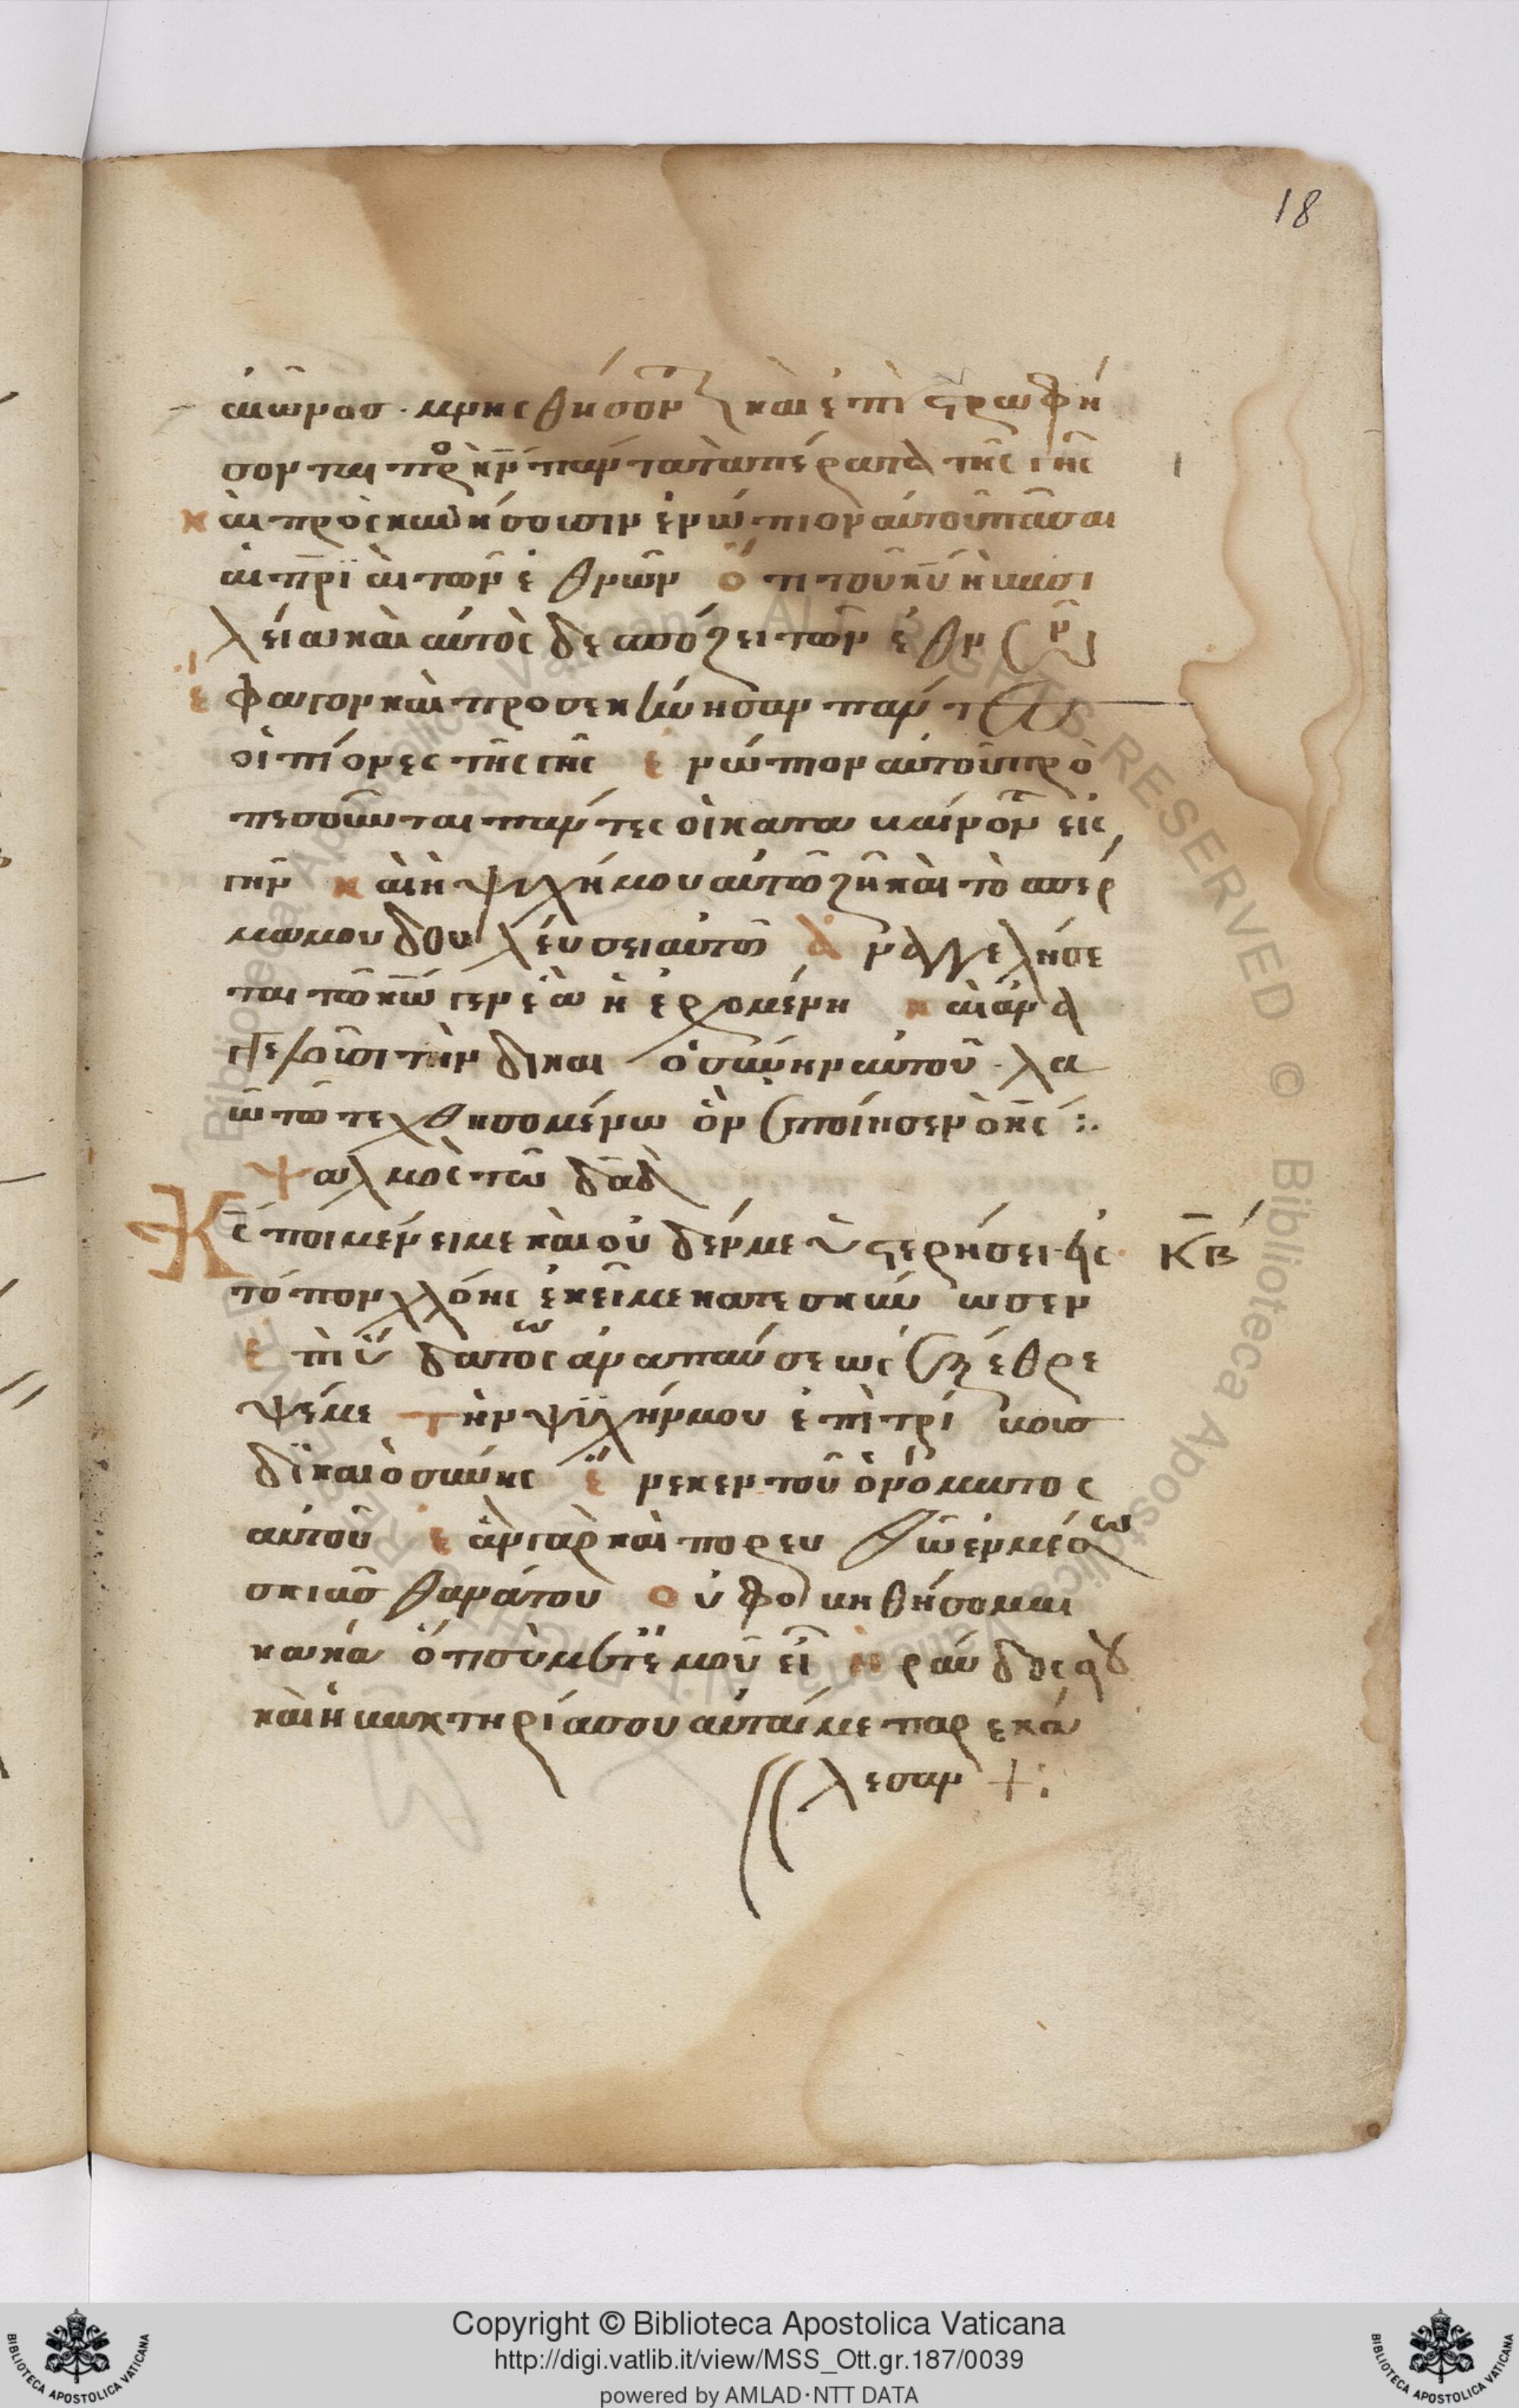 18
αιῶνος· μνησθήσονται καὶ ἐπιστραφή
σονται πρὸς κν̄ πάντα τὰ πέρατα τῆς γῆς
καὶ προσκυνήσουσιν ἐνώπιον αὐτοῦ πᾶσαι
αἱ πρϊαὶ τῶν ἐθνῶν ὅτι τοῦ κῡ ἡ βασι
λεία καὶ αὐτὸς δεσπόζει τῶν ἐθνῶν
ἔφαγον καὶ προσεκύνησαν πάντες
οἱ πίονες τῆς γῆς ἐνώπιον αὐτοῦ προ
πεσοῦνται πάντες οἱ καταβαίνοντες εἰς
γῆν καὶ ἡ ψυχή μου αὐτῶ ζῆ καὶ τὸ σπέρ
μα μου δουλεύσει αὐτῶ ἀναγγελήσε
ται τῶ κω̄ γενεὰ ἡ ἐρχομένη καὶ ἀνα
γγελοῦσι τὴν δικαιοσύνην αὐτοῦ· λα
ῶ τῶ τεχθησομένω ὃν ἐποίησεν ὁ κς̄ :·
ψαλμὸς τῶ δᾱδ
Κς̄ ποιμένει με καὶ οὐδέν με ὑστερήσει· εἰς
κβ̄
τόπον χλόης ἐκεῖ με κατεσκήνωσεν
ἐπὶ ὕδατος ἀναπαύσεως ἐξέθρε
ψέ με τὴν ψυχήν μου ἐπὶ τρίβους
δικαιοσύνης ἕνεκεν τοῦ ὀνόματος
αὐτοῦ ἐὰν γὰρ καὶ πορευθῶ ἐν μέσω
σκιᾶς θανάτου οὐ φοβηθήσομαι
κακά ὅτι σὺ μετ' ἐμοῦ εἶ ἡ ράβδος σου
καὶ ἡ βακτηρία σου αὐταί με παρεκά
λεσαν +:
Copyright © Biblioteca Apostolica Vaticana
http://digi.vatlib.it/view/MSS_Ott.gr.187/0039
powered by AMLAD·NTT DATA